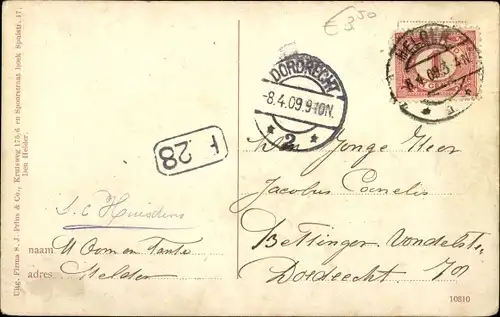 € 3 50
HELDER
8.4.09.3-4N.
DORDRECHT
8.4.09.9-10N.
2
F 28
Den Jonge Heer
Jacobus Cornelis
Bettinger Vondelstr
Dordrecht.
naam U Oom en Tante
adres Helder
Uitg. Firma v. J. Prins & Co., Kruisweg 175,6 en Spoorstraat hoek Spuistr. 17.
Den Helder.
10810